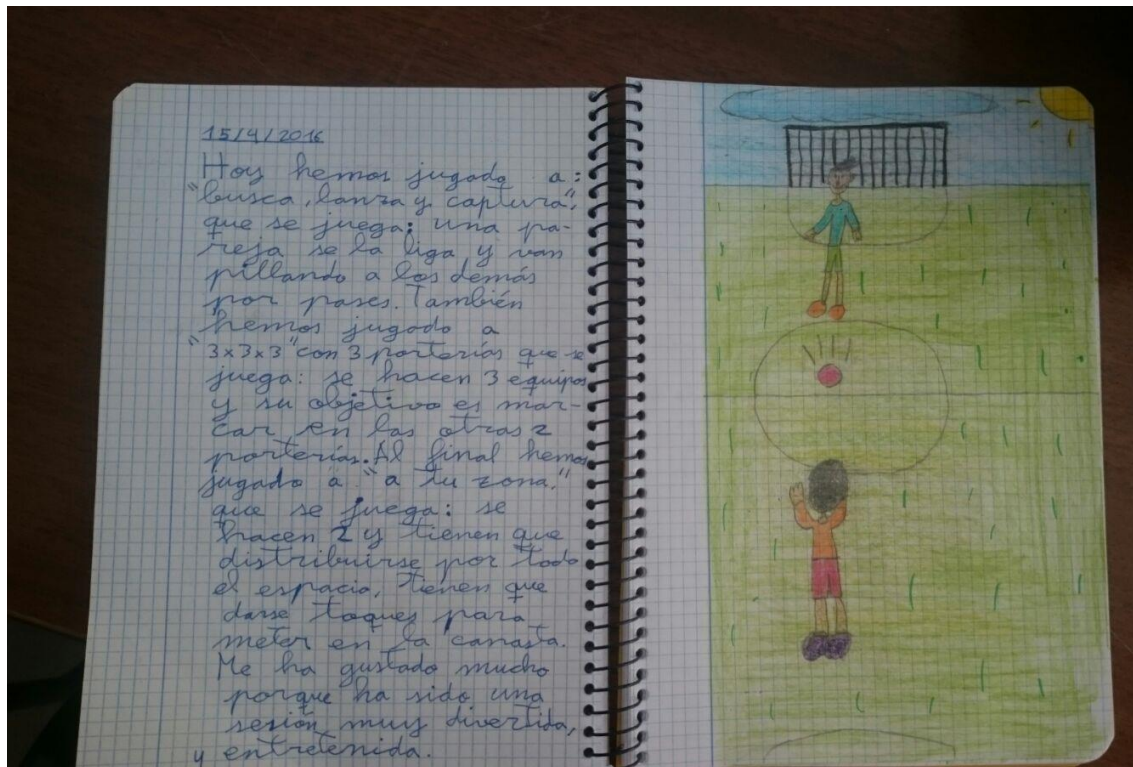 15/4/2016
Hoy hemos jugado a:
"busca, lanza y captura",
que se juega: una pa-
reja se la liga y van
pillando a los demás
por pases. También
hemos jugado a
"3x3x3" con 3 porterías que se
juega: se hacen 3 equipos
y su objetivo es mar-
car en las otras 2
porterías. Al final hemos
jugado a "a tu zona."
que se juega: se
hacen 2 y tienen que
distribuirse por todo
el espacio, tienen que
darse toques para
meter en la canasta.
Me ha gustado mucho
porque ha sido una
sesión muy divertida,
y entretenida.